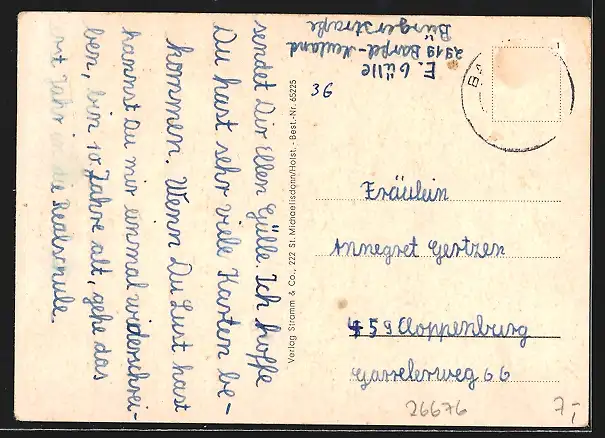 sendet Dir Ellen Gülle. Ich hoffe
Du hast sehr viele Karten be-
kommen. Wenn Du Lust hast
kannst Du mir einmal widerschrei-
ben, bin 10 Jahre alt, gehe das
Jahr in die Realschule.
E. Gülle
2919 Barßel-Neuland
Bürgerstraße
36
Verlag Stramm & Co., 222 St. Michaelisdonn/Holst. - Best.-Nr. 65225
Fräulein
Annegret Gertzen
459 Cloppenburg
Garrelerweg 66
26676
7,-